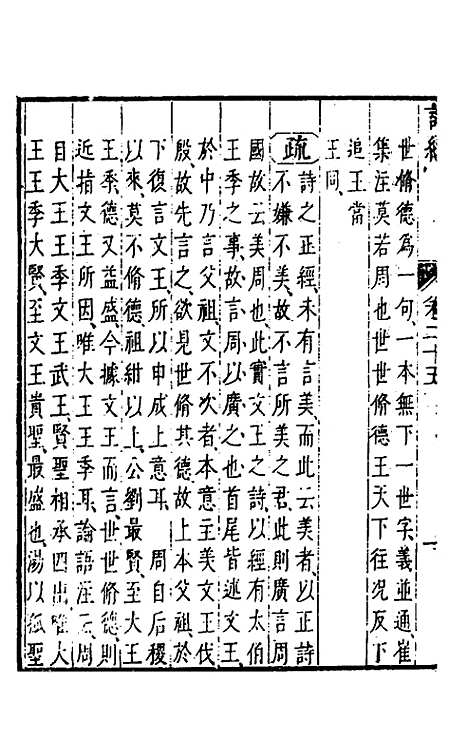 世脩德爲一句、一本無下一世字、義並通、崔
集注莫若周也世世脩德王天下往况反下
追王當
王同、
疏
詩之正經、未有言美、而此云美者、以正詩
不嫌不美、故不言所美之君、此則廣言周
國故云美周也、此實文王之詩、以經有太伯
王季之事、故言周以廣之也首尾皆述文王、
於中乃言父祖、文不次者、本意主美文王伐
殷、故先言之、欲見世脩其德、故上本父祖、於
下復言文王所以申成上意耳 周自后稷
以來、莫不脩德、祖紺以上、公劉最賢、至大王
王季、德又益盛、今據文王而言世世脩德、則
近指文王所因、唯大王王季耳、論語注云、周
自大王王季文王武王賢聖相承四世、唯大
王王季大賢、至文王貴聖、最盛也、湯以孤聖
詩經
卷二十五
一